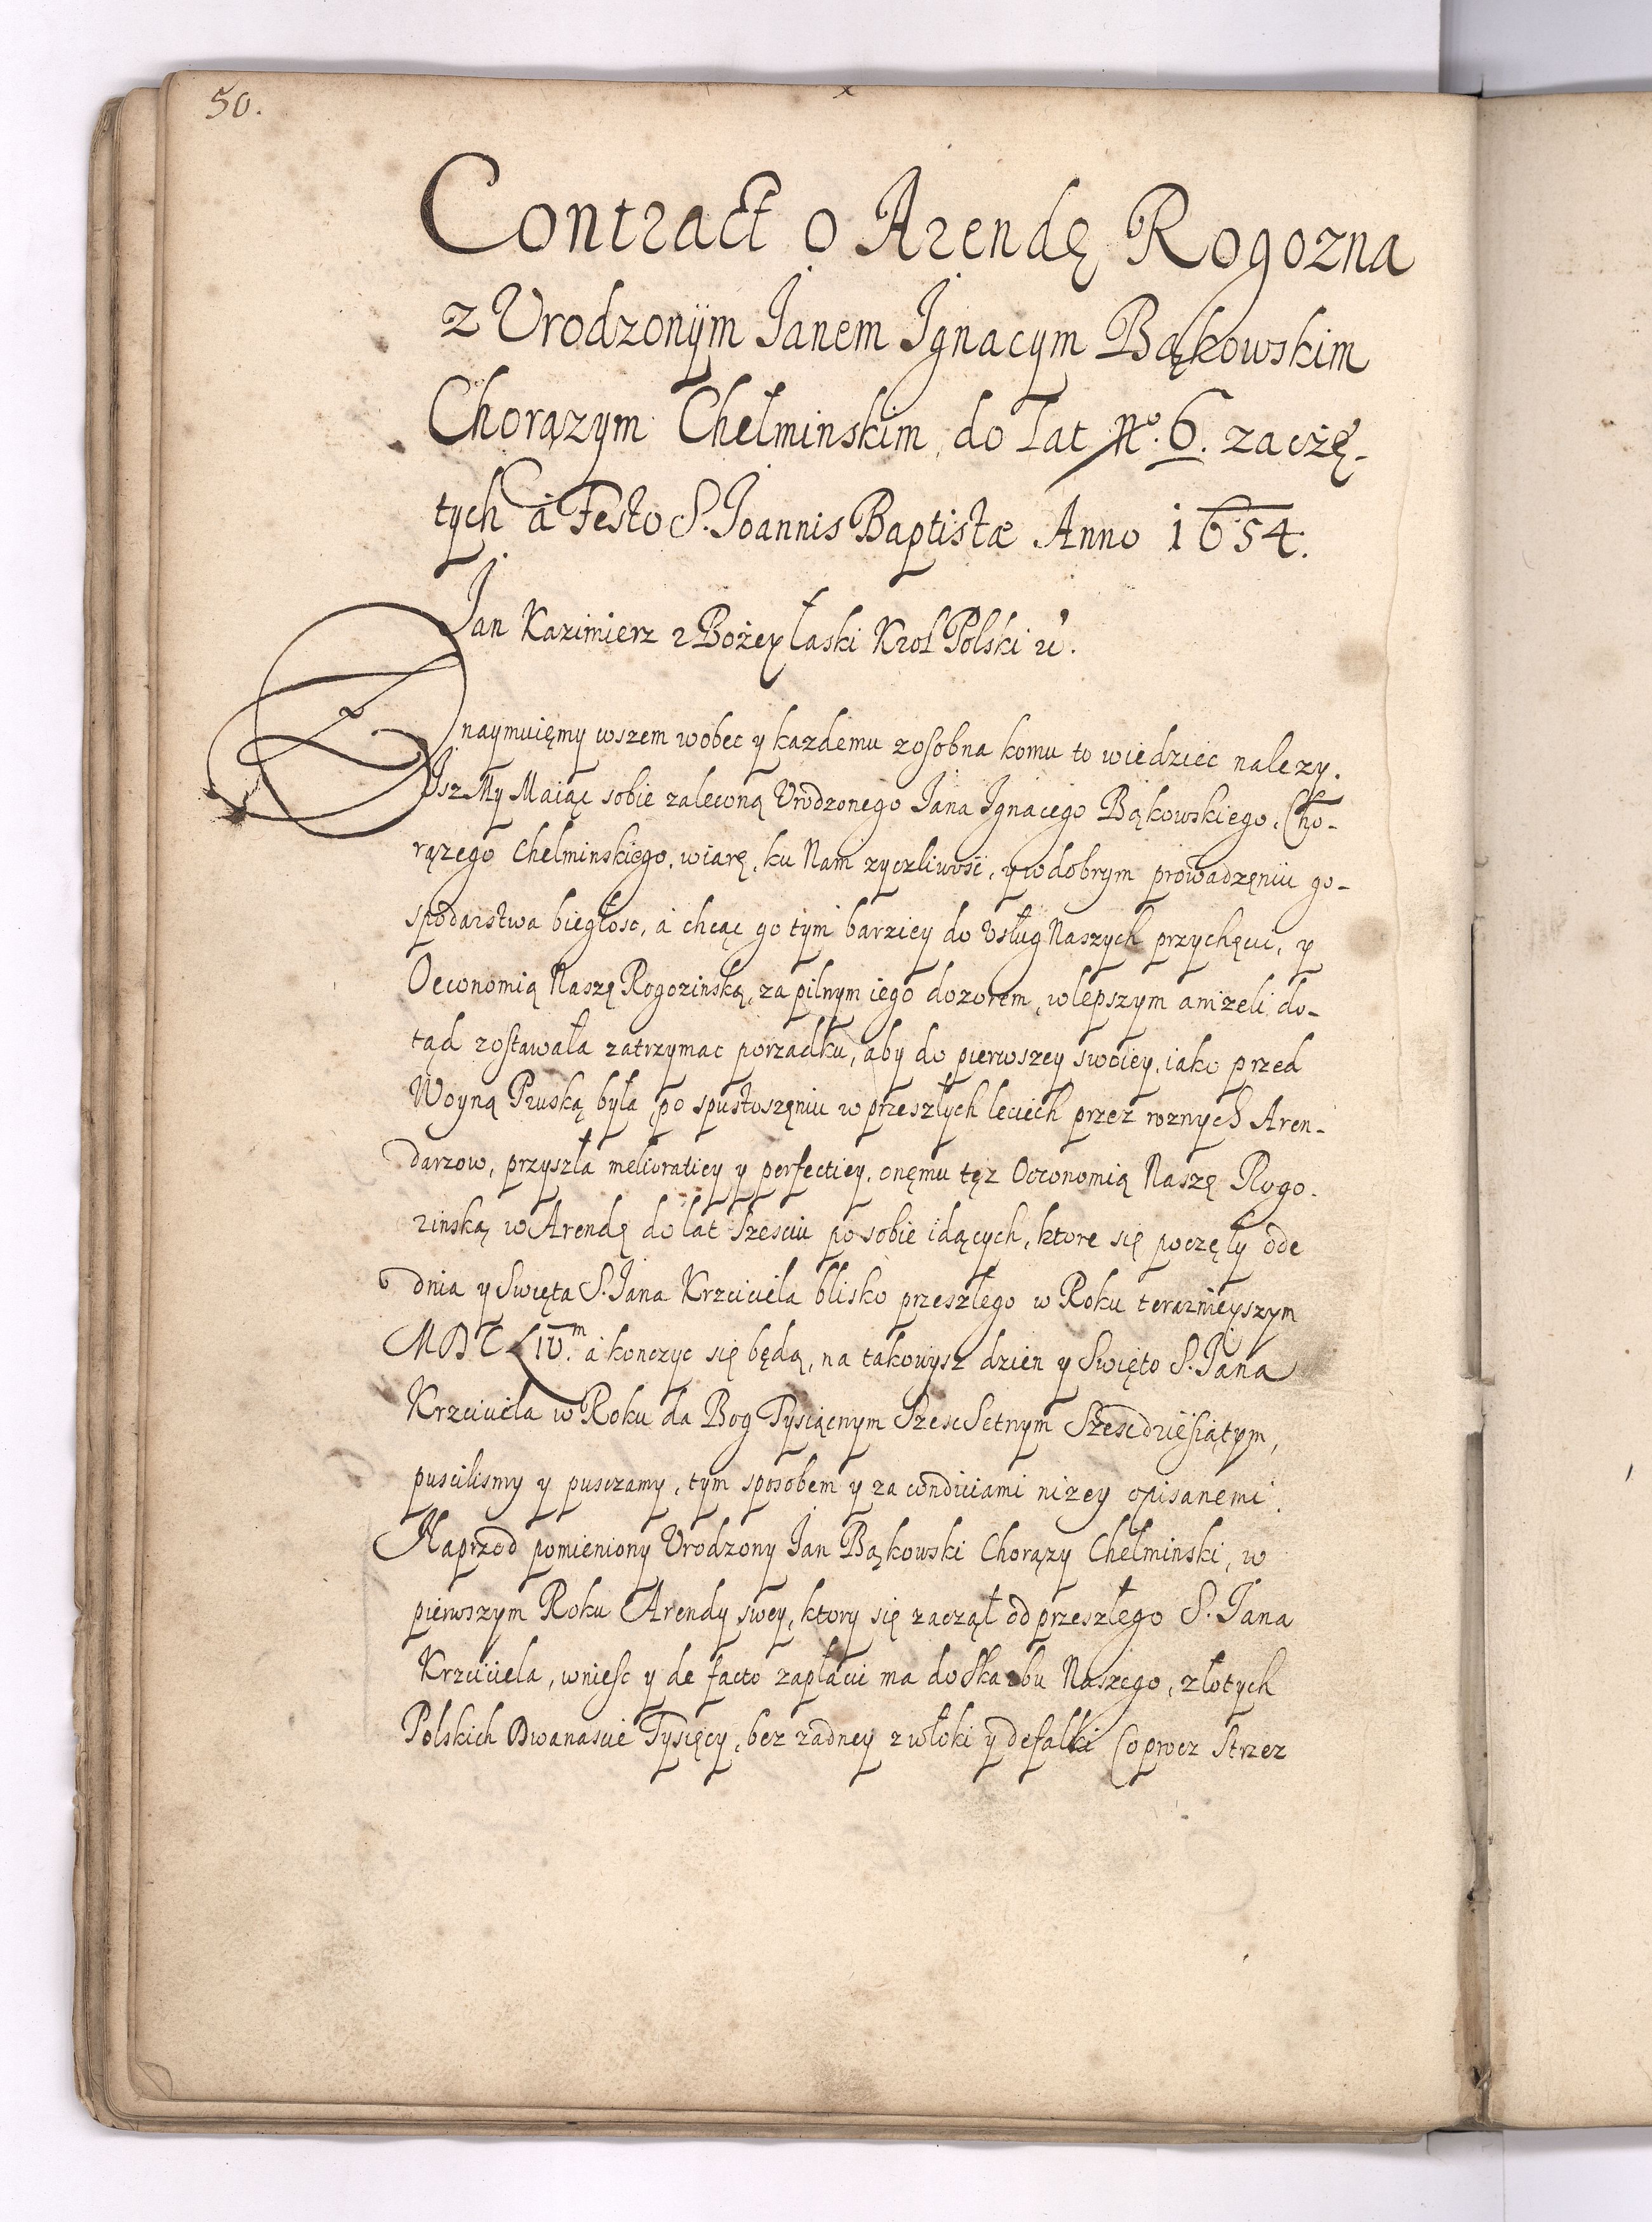 50.
Contract o Arendę Rogozna
z Vrodzonÿm Janem Jgnacym Bąkowskim
Chorązym Chełminskim, do Lat No. 6. zaczę-
tych à Festo S. Joannis Baptistæ Anno 1654.
Jan Kazimierz z Bożey łaski Krol Polski
Znaymuięmy wszem wobec y kazdemu zosobna komu to wiedziec nalezy.
Jsz My Maiąc sobie zaleconą Vrodzonego Jana Jgnacego Bąkowskiego, Cho-
rązego Chelminskiego, wiarę, ku Nam zyczliwosc, y w dobrym prowadzęniu go-
spodarstwa biegłosc, à chcąc go tym barziey do Vsług Naszych przychęcic, y
Oeconomią Naszę Rogozinską, za pilnym iego dozorem, w lepszym anizeli do-
tąd zostawała zatrzymac porządku, aby do pierwszey swoiey, iako przed
Woyną Pruską była, po spustoszęniu w przeszłych leciech przez roznych Aren-
darzow, przyszła melioratiey y perfectiey, onęmu tęz Oeconomią Naszę Rogo-
zinską w Arendę do lat szesciu po sobie idących, ktore się poczęły ode
dnia y Swięta S. Jana Krzciciela blisko przeszłego w Roku teraznieyszym
MDCLIV.m à konczyc się będą, na takowysz dzien y Swięto S. Jana
Krzciciela w Roku da Bog Tysiącnym SzescSetnym Szescdziesiątym,
puscilismy y pusczamy, tym sposobem y za condiciami nizey opisanemi.
Naprzod pomieniony Vrodzony Jan Bąkowski Chorązy Chelminski, w
pierwszym Roku Arendy swey, ktory się zaczął od przeszłego S. Jana
Krzciciela, wniesc y de facto zapłacic ma do Skarbu Naszego, złotych
Polskich Dwanascie Tysięcy, bez zadney zwłoki y defalki (oprocz Strzez